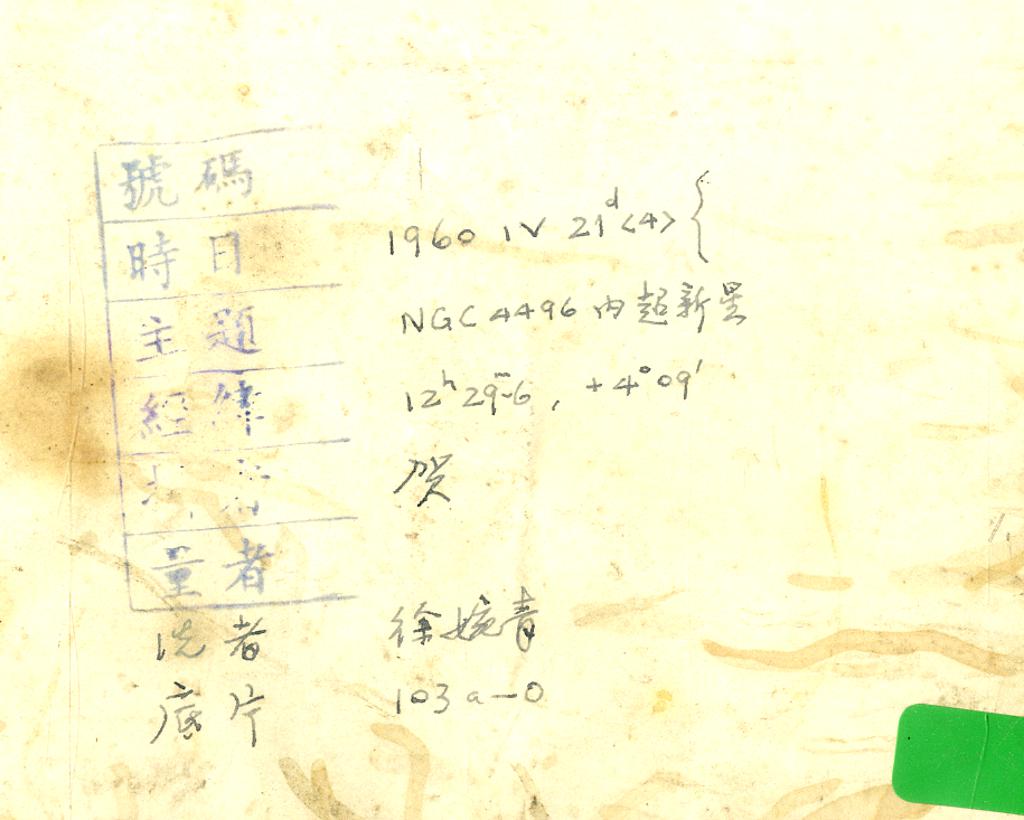 號碼
時日 1960 IV 21ᵈ <4> {
主題 NGC 4496 内超新星
經緯 12ʰ 29ᵐ.6, +4°09′
者 贺
量者
洗者 徐婉青
底片 103a—O